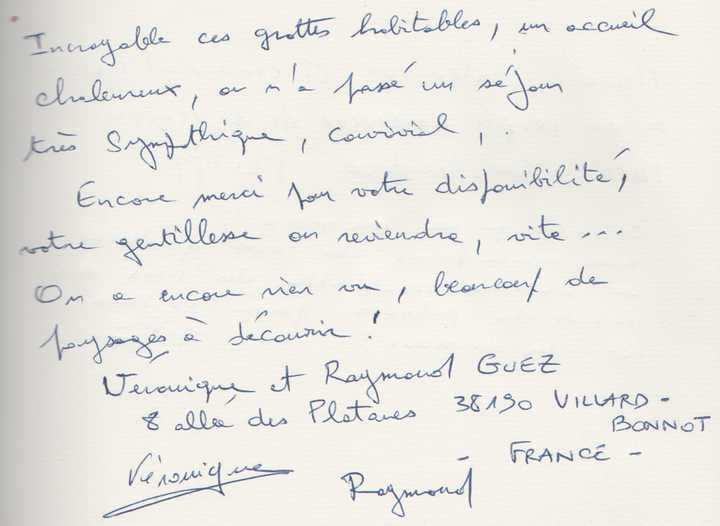 Incroyable ces grottes habitables, un accueil
chaleureux, on n'a passé un séjour
très Sympthique, convivial, .
Encore merci pour votre disponibilité,
votre gentillesse on reviendra, vite ...
On a encore rien vu, beaucoup de
paysages à découvrir !
Véronique et Raymond GUEZ
8 allée des Platanes 38190 VILLARD -
BONNOT
FRANCE -
Véronique
Raymond